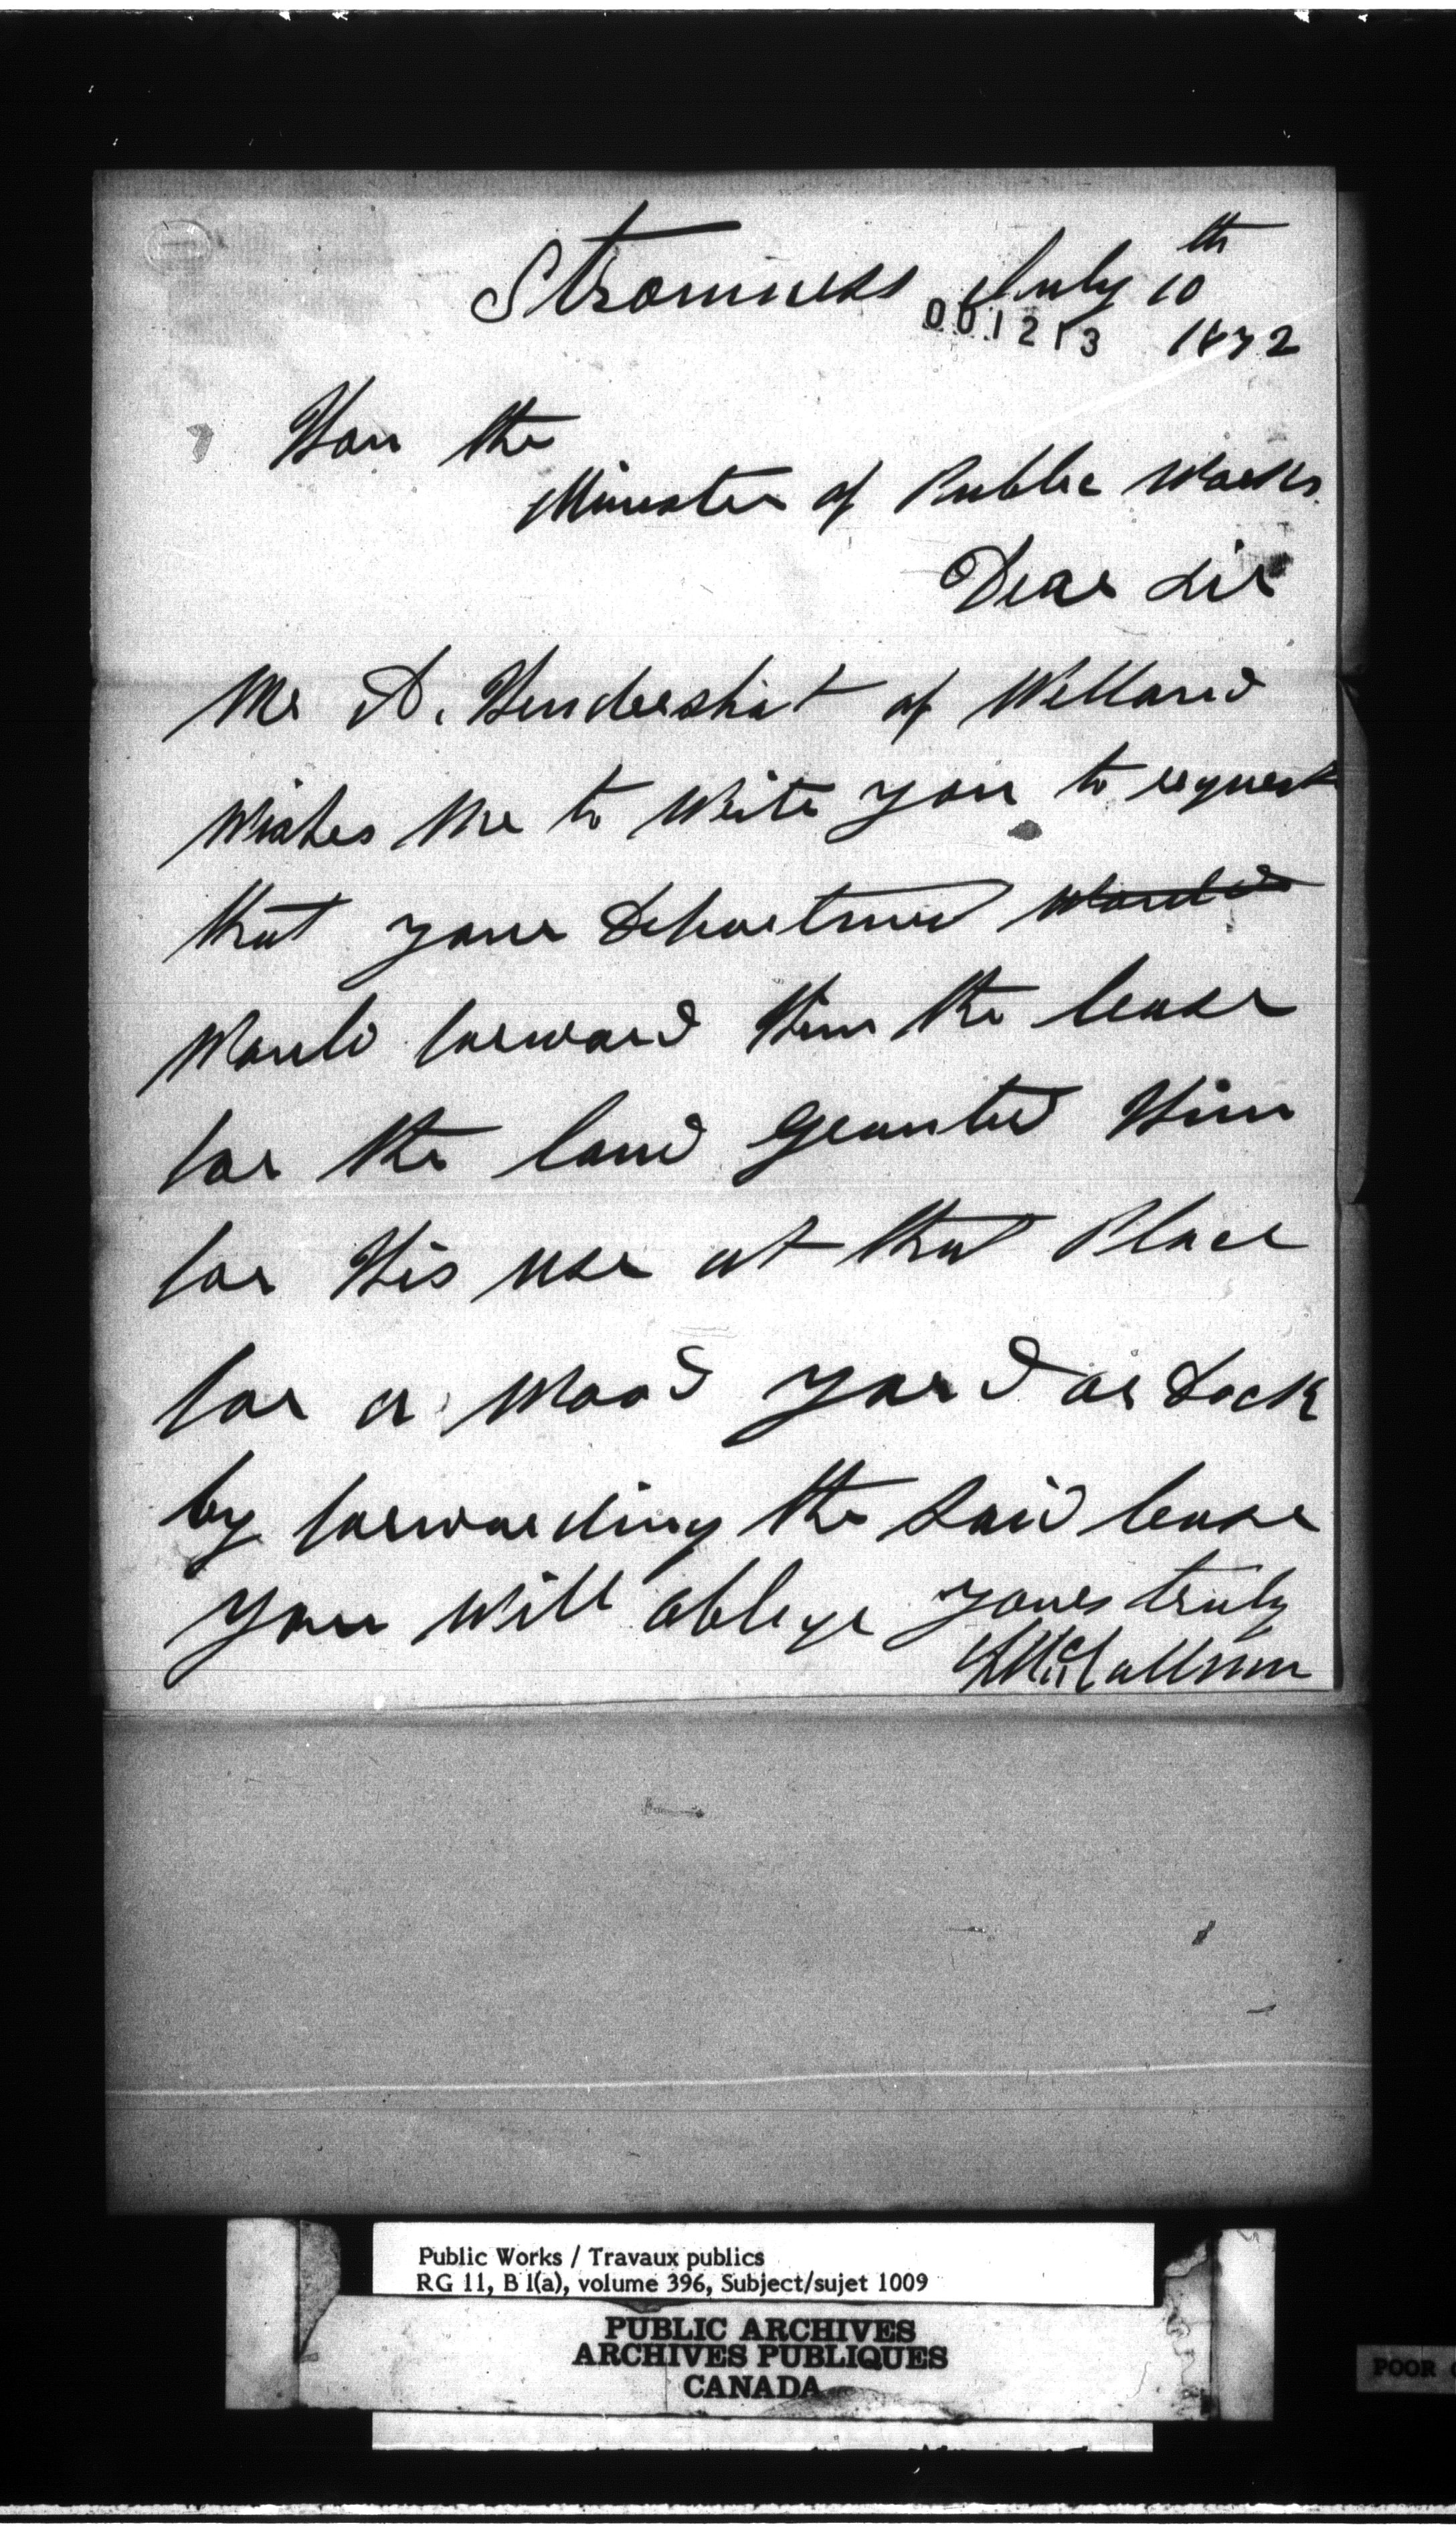 Stromness July 10th
001213 1872
Hon the
Minister of Public Works
Dear Sir
Mr D. Hendershot of Welland
Wishes Me to Write you to request
that your Department would
Would forward Him the lease
for the land Granted Him
for His use at that Place
for a Wood yard or Dock
by forwarding the Said lease
you will oblege yours truly
L McCallum
Public Works / Travaux publics
RG 11, B 1(a), volume 396, Subject/sujet 1009
PUBLIC ARCHIVES
ARCHIVES PUBLIQUES
CANADA
POOR